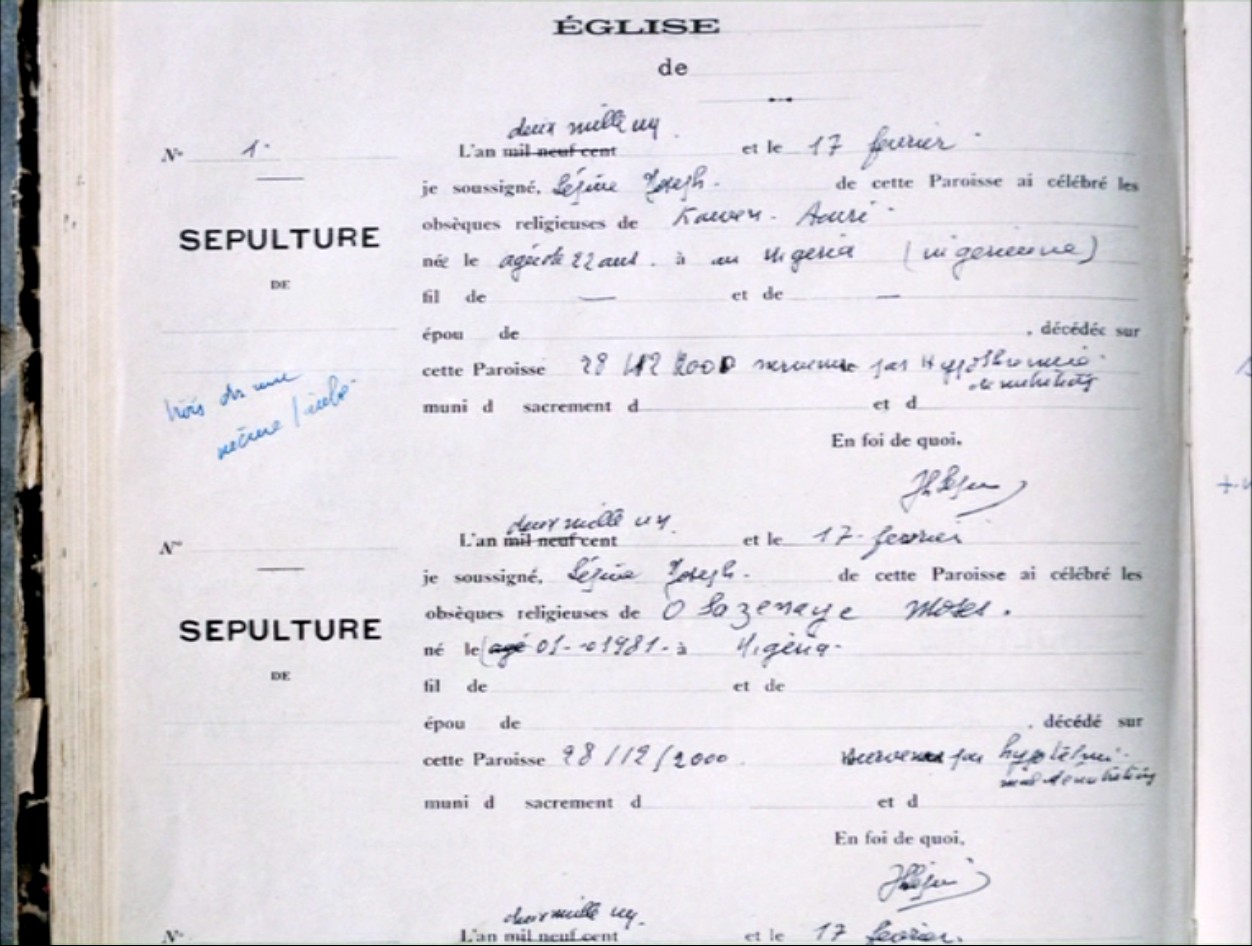 ÉGLISE
de
deux mille un
N° 1. L'an mil neuf cent et le 17 fevrier
je soussigné, Légine Joseph. de cette Paroisse ai célébré les
obsèques religieuses de
SEPULTURE
née le agée de 22 ans. à au Nigeria (nigérienne)
DE
fil de — et de —
épou de , décédée sur
cette Paroisse 28/12/2000 survenue par
muni d sacrement d et d
trois dans une
même
En foi de quoi.
deux mille un
N° L'an mil neuf cent et le 17 fevrier
je soussigné, Légine Joseph. de cette Paroisse ai célébré les
obsèques religieuses de O Lazenaye Moses.
SEPULTURE
né le (agé 01-01981- à Nigéria-
DE
fil de et de
épou de , décédé sur
cette Paroisse 28/12/2000 survenue par
muni d sacrement d et d
En foi de quoi,
deux mille un
N° L'an mil neuf cent et le 17 fevrier.